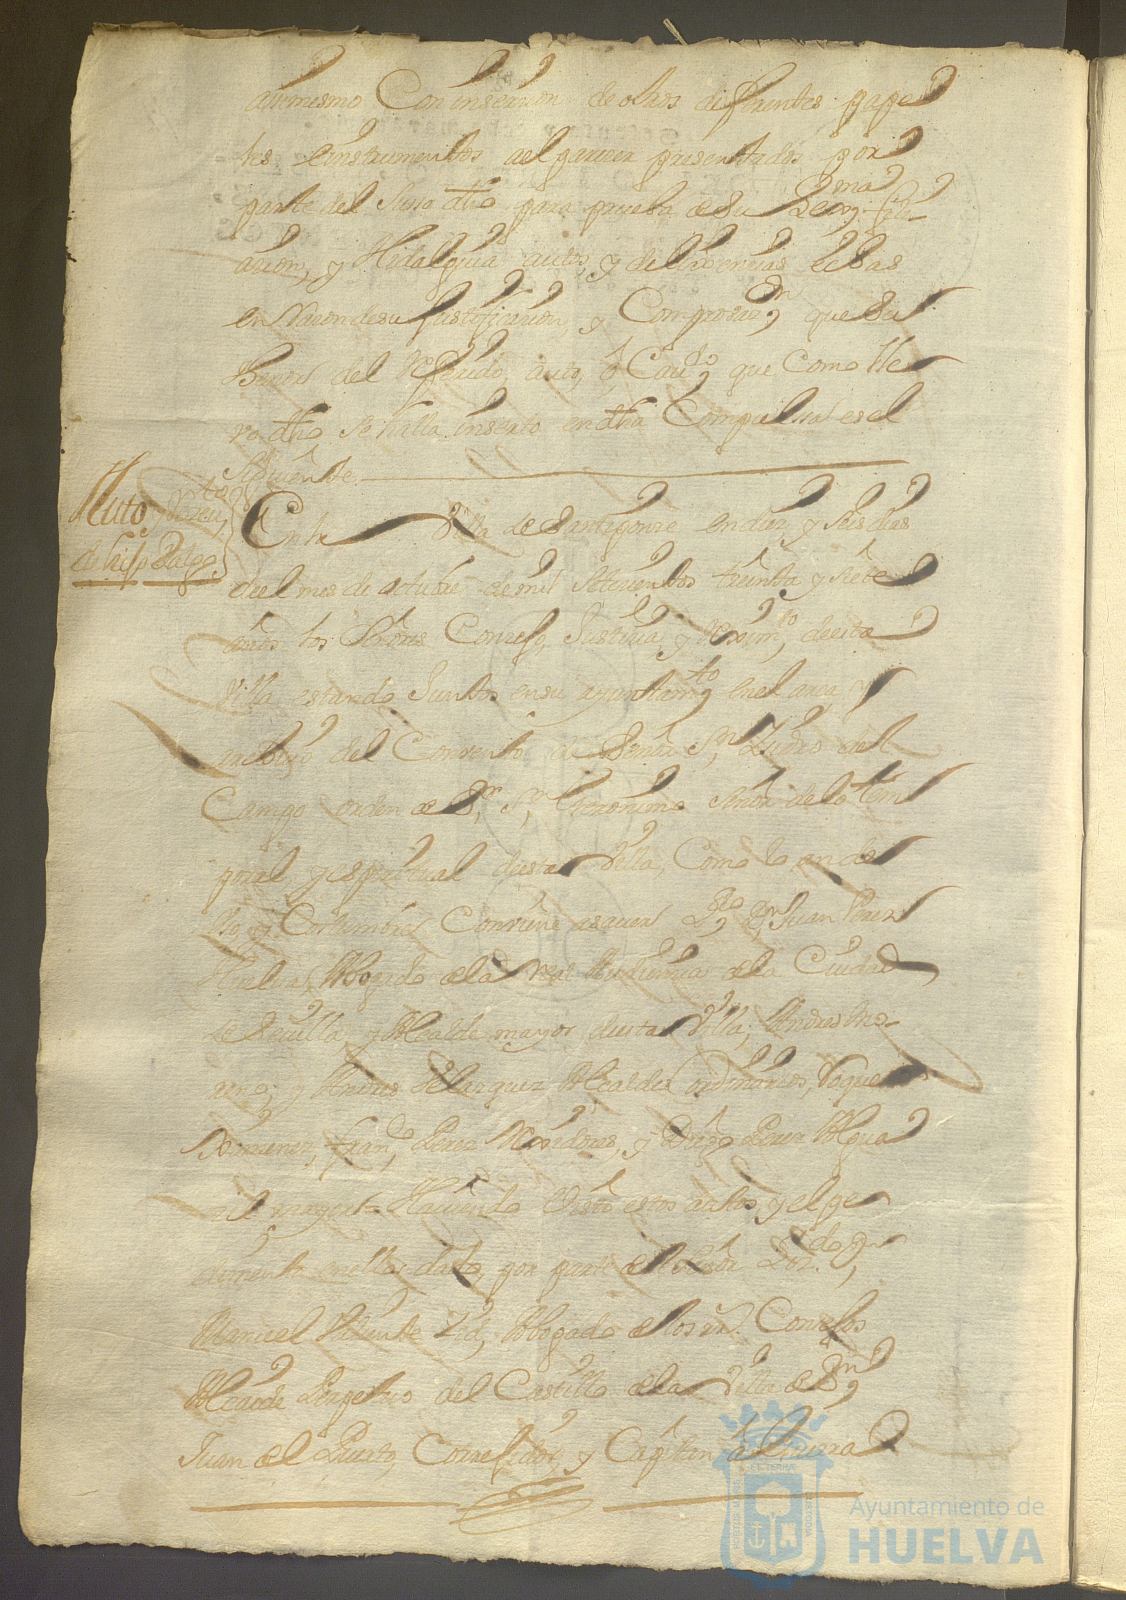 asimesmo Con insersion de otros diferentes pape
les e instrumentos al parezer presentados por
parte del suso dho para prueba de su Lexma fili-
asion, y Hidalguia autos, y dilixencias echas
en razon de su Justificasion, y Comprobazn que su
thenor del referido auto, o Caudo que como lle
vo dho se halla inserto en dha Compulsa es el
siguiente
Auto
de hijo dalgo
En la Villa de Santiponze en diez, y seis dias
de el mes de octubre de mil setecientos treinta y siete
años los Señores Consejo, Justicia, y reximto de esta
Villa estando Juntos en su ayuntamto en el arca y
archivo del Convento de Señor Sn Ysidro del
Campo orden de Sr Sn Geronimo Señor de lo tem
poral y espiritual de esta Villa, Como lo an de
Uso, y Costumbre Conviene a saver Juan Perez
Huelva, Abogado de la real Audiencia de la Ciudad
de Sevilla, y Alcalde mayor de esta Villa, Andres Mo-
reno, y Andres Velazquez Alcaldes ordinarios, Roque
Ximenez, Franco Perez Rexidores, y Diego Perez Algua
zil mayor Haviendo Visto estos autos y el pe
dimento en ellos dado, por parte del Señor Lizdo Dn
Manuel Vizente Zid, Abogado de los rs Consejos
Alcaide Perpetuo del Castillo de la Villa de Sn
Juan del Puerto, Correxidor, y Capitan a Guerra
Ayuntamiento de
HUELVA